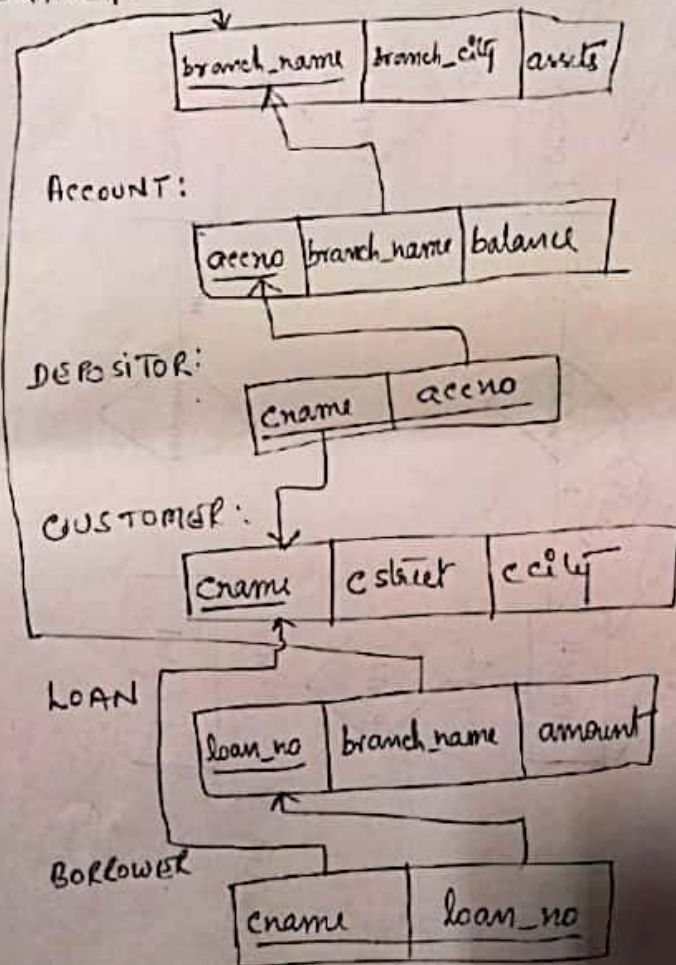 branch_name branch_city assets
ACCOUNT:
accno branch_name balance
DEPOSITOR:
cname accno
CUSTOMER:
cname cstreet ccity
LOAN
loan_no branch_name amount
BORROWER
cname loan_no